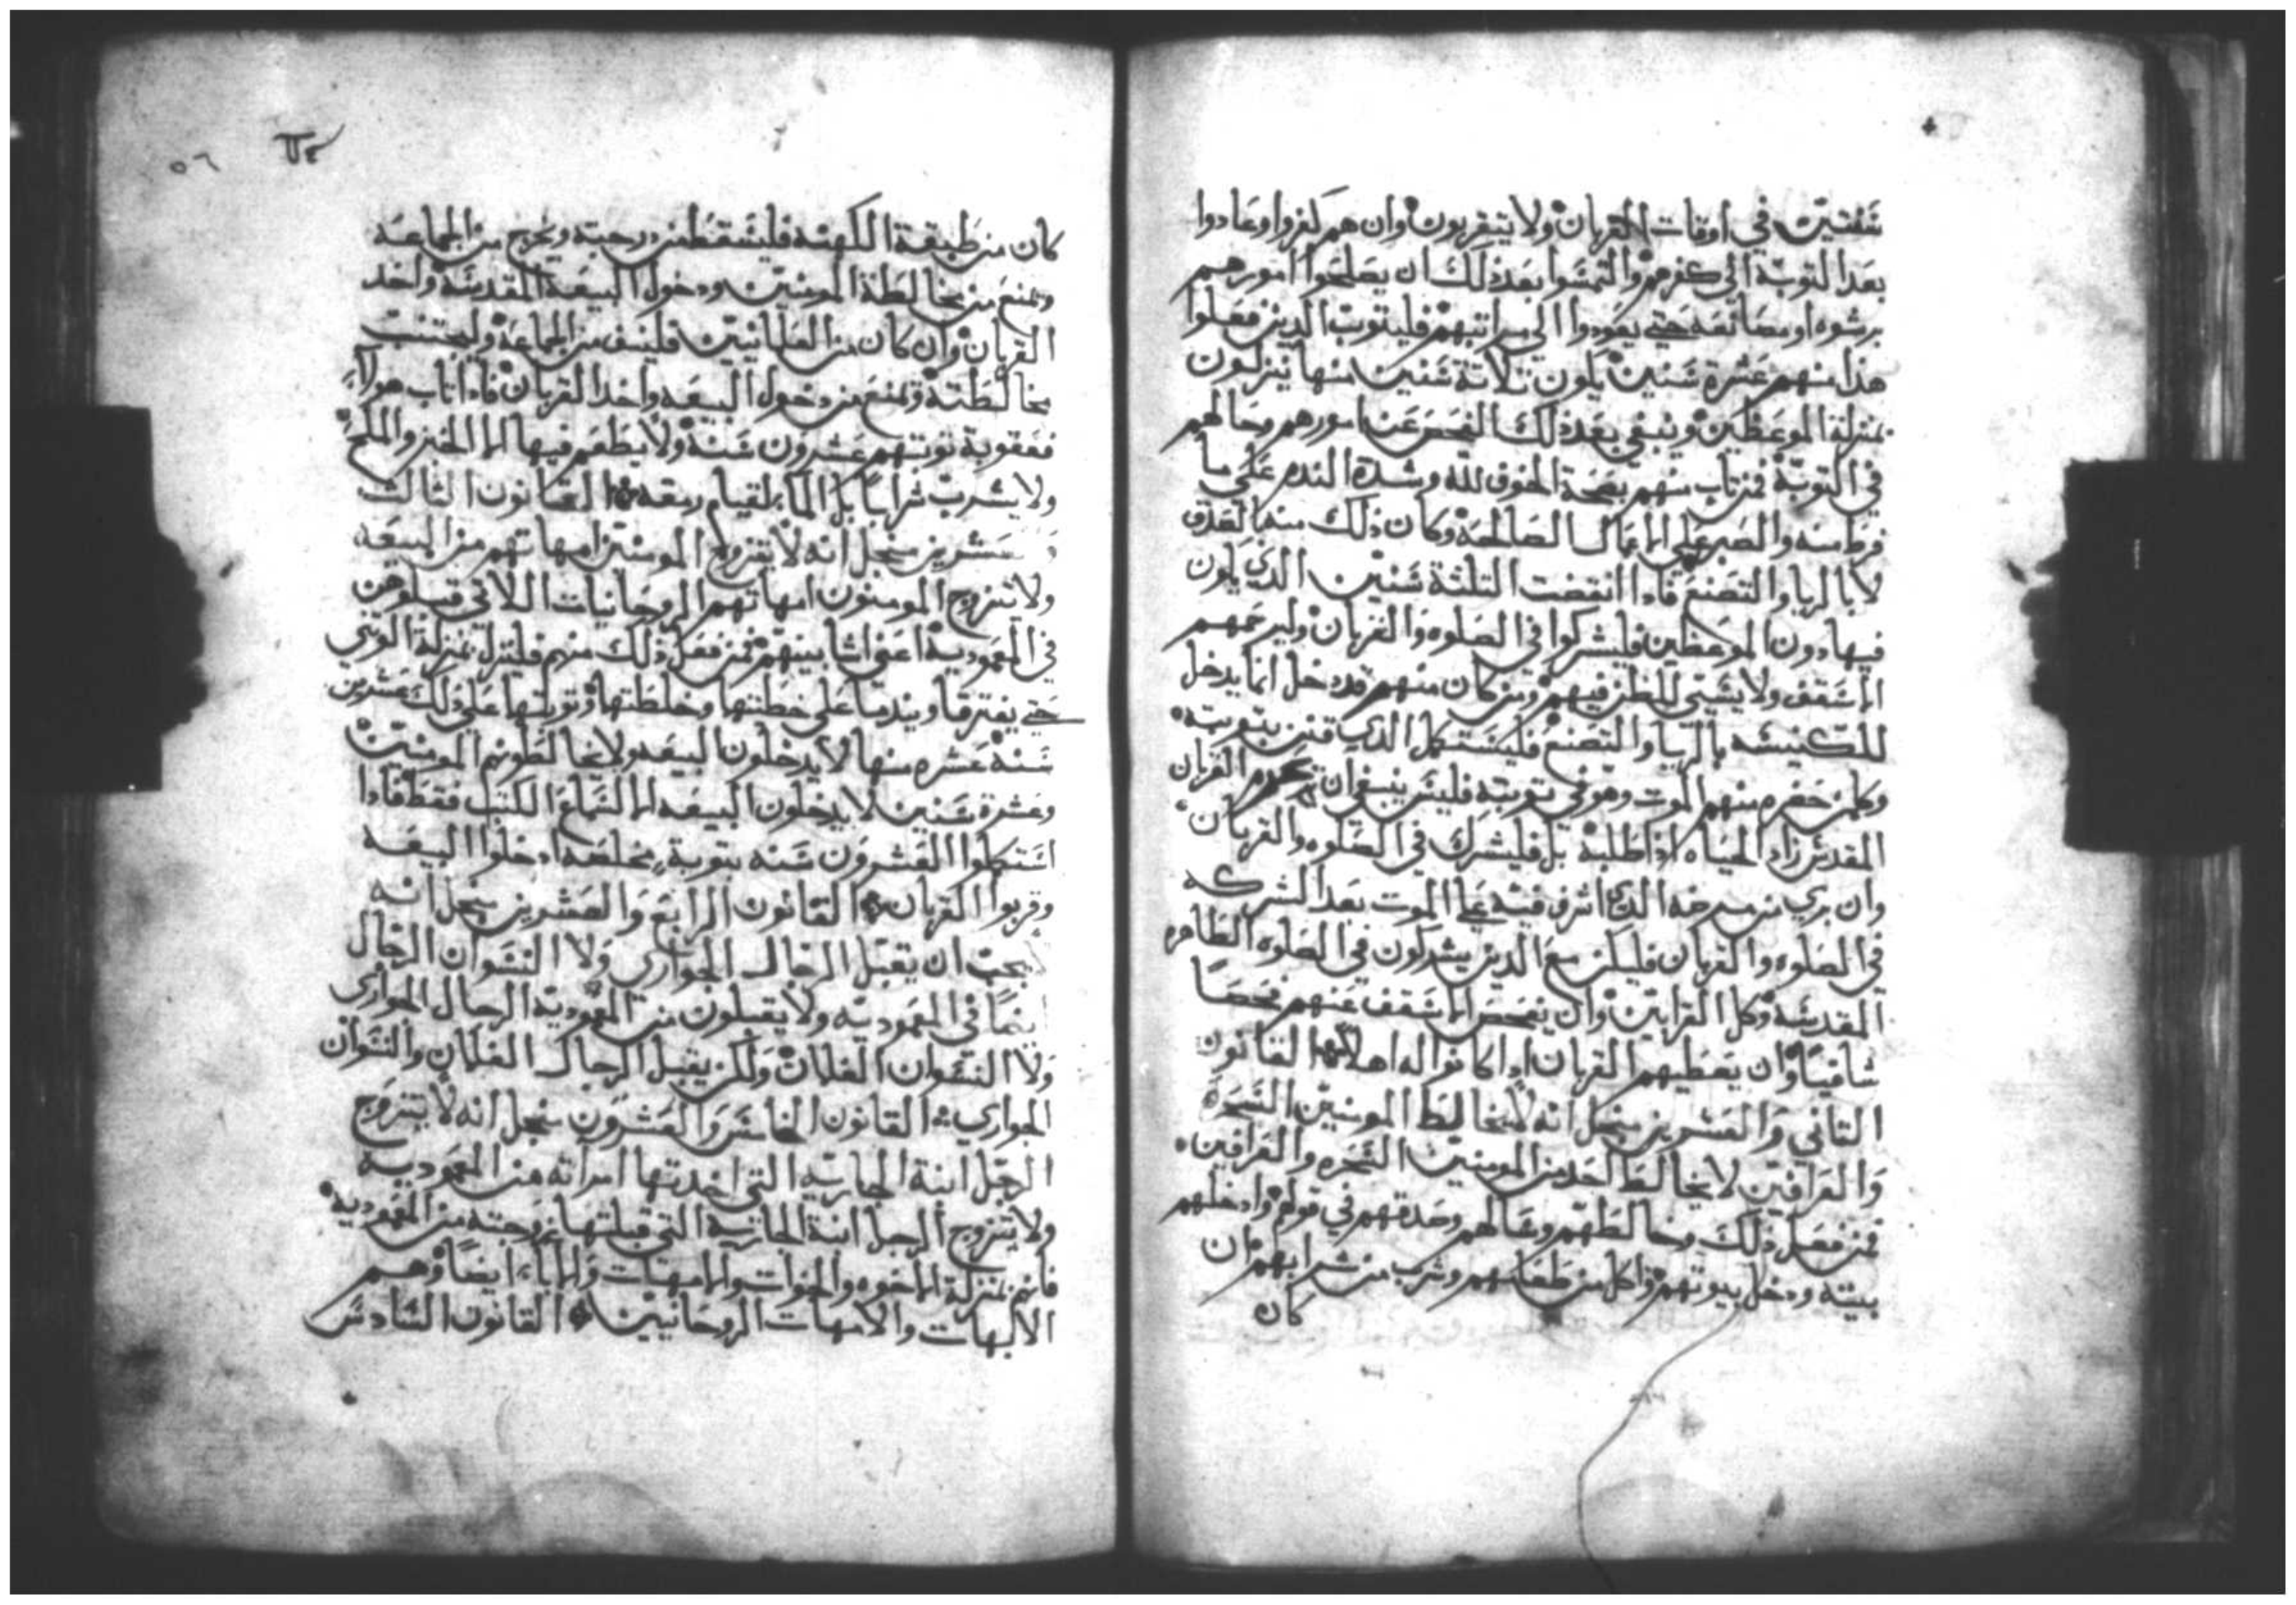 سنتين في اوقات القربان ولا يتقربون وان هم كفروا وعادوا
بعد التوبة الى كفرهم والتمسوا بعد ذلك ان يصلحوا امورهم
برشوه او مصانعه حتي يعودوا الى مراتبهم فليتوب الدين فعلوا
هذا منهم عشرة سنين يكون ثلاتة سنين منها ينزلون
بمنزلة الموعظين وينبغي بعد ذلك الفحص عن امورهم وحالهم
في التوبة فمن تاب منهم بصحة الخوف لله وشدة الندم علي ما
فرط منه والصبر علي الاعمال الصالحة وكان ذلك منه بالصدق
لا بالريا والتصنع فادا انقضت التلتة سنين الدي يكون
فيها دون الموعظين فليشركوا في الصلوه والقربان وليرحمهم
الاسقف ولا يسي الظن فيهم ومن كان منهم قد دخل انما يدخل
للكنيسه بالريا والتصنع فليستكمل الدي قنن بتوبته
وكلمن حضره منهم الموت وهو في توبته فليس ينبغي ان يحرم القربان
المقدس زاد الحياه اذا طلبه بل فليشرك في الصلوه والقربان
وان بري من مرضه الدي اشرف فيه علي الموت بعد الشركه
في الصلوه والقربان فليكن مع الدين يشركون في الصلوه الطاهره
المقدسه وكل القرابين وان يفحص الاسقف عنهم فحصا
شافيا وان يعطيهم القربان ادا كانوا له اهلا القانون
التاني والعشرين سجل انه لا يخالط المومنين السحره
والعرافين لا يخالط احد من المومنين السحره والعرافين
فمن فعل ذلك وخالطهم وعالهم وصدقهم في قولهم وادخلهم
بيته ودخل بيوتهم واكل من طعامهم وشرب من شرابهم ان
كان
٥٦
كان من طبيقة الكهنه فليسقط من درجته ويخرج من الجماعه
ويمنع من مخالطة المومنين ودخول البيعه المقدسه واخد
القربان وان كان من العلمانيين فلينف من الجماعة وليجتنب
مخالطته ويمنع من دخول البيعه واخد القربان فادا تاب هولاء
فعقوبة توبتهم عشرون سنة ولا يطعم فيها الا الخبز والملح
ولا يشرب شرابا بل الما لقيام رمقه القانون الثالث
وعشرين سجل انه لا يتزوج المومنين امهاتهم من البيعه
ولا يتزوج المومنون امهاتهم الروحانيات اللاتي قبلوهن
في المعموديه اعني اشابينهم فمن فعل ذلك منهم فلينزل بمنزلة الوتني
حتي يفترقا ويندما علي خطيتها وخلطتها وتوبتها علي ذلك عشرين
سنة عشره منها لا يدخلون البيعه ولا يخالطونهم المومنين
وعشرة سنين لا يدخلون البيعه الا لسماع الكتب فقط فادا
استكملوا العشرون سنه بتوبة مخلصه ادخلوا البيعه
وقربوا القربان القانون الرابع والعشرين سجل انه
يجب ان يقبل الرجال الجواري ولا النسوان الرجال
ايضا في المعموديه ولا يقبلون من المعموديه الرجال الجواري
ولا النسوان الغلمان ولكن يقبل الرجال الغلمان والنسوان
الجواري القانون الخامس والعشرون سجل انه لا يتزوج
الرجل ابنة الجاريه التي اخدتها امراته من المعموديه
ولا يتزوج الرجل ابنة الجاريه التي قبلتها زوجته من المعموديه
فانهم بمنزلة الاخوه والاخوات والامهات والاباء ايضا وهم
الابهات والامهات الروحانيين القانون السادس